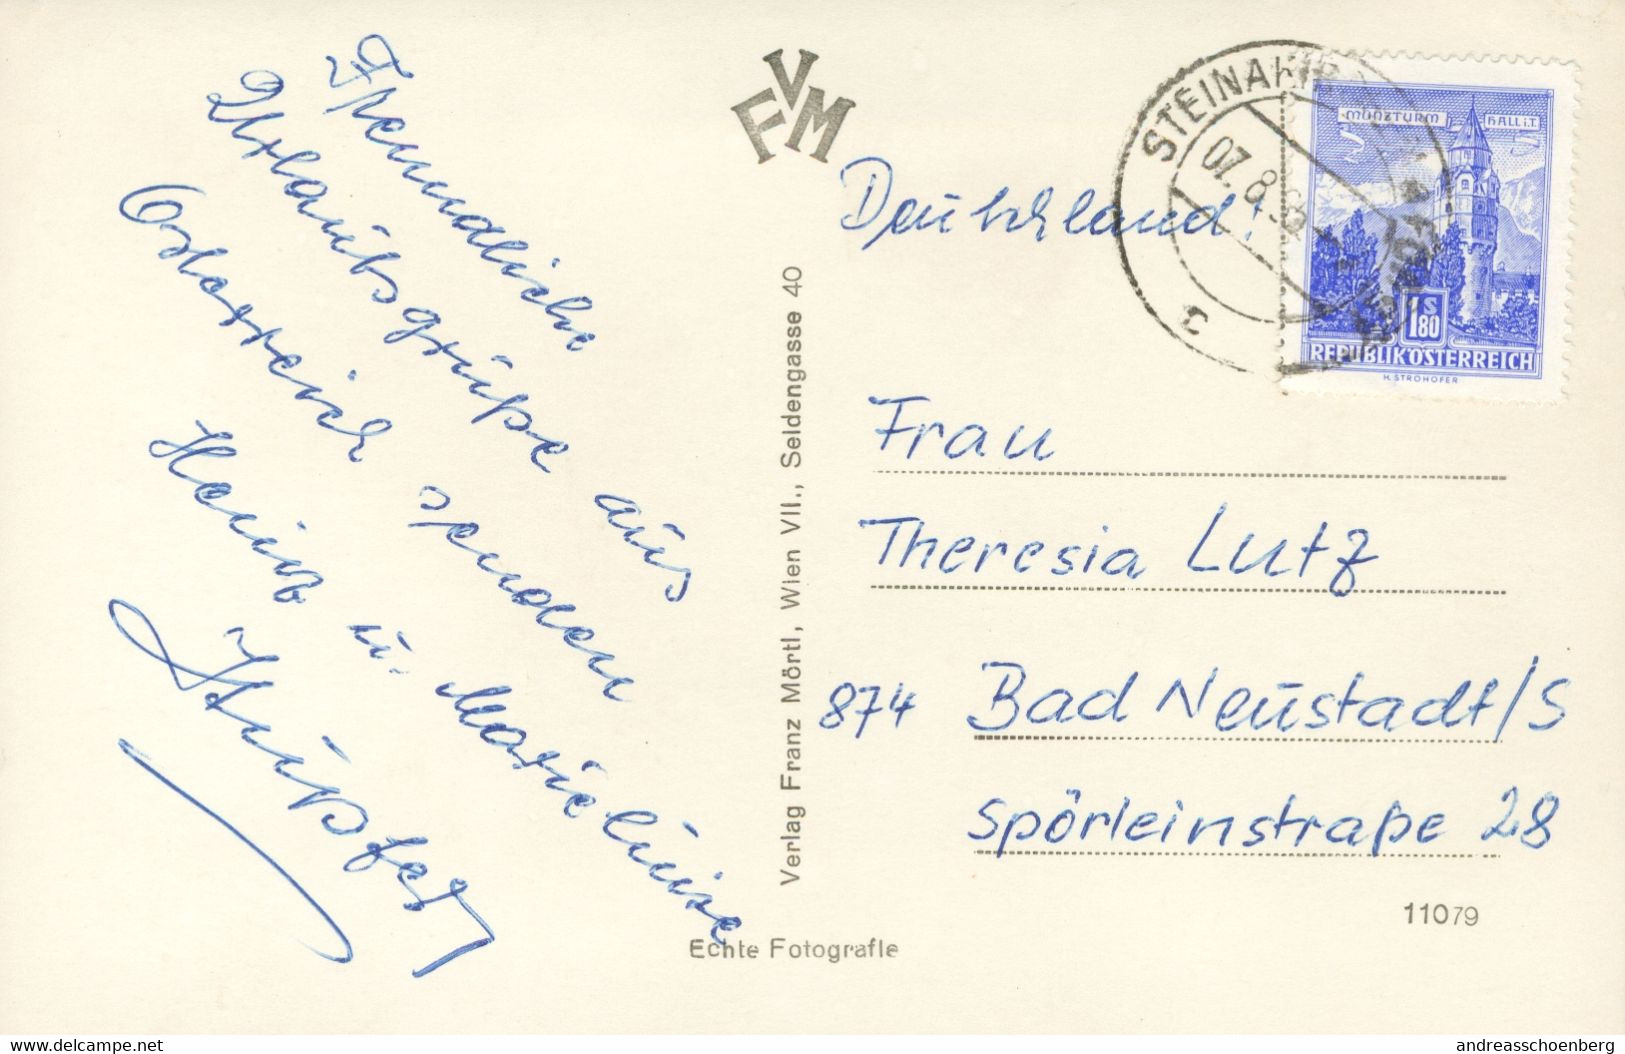 Freundliche
Urlaubsgrüße aus
Österreich senden
Heinz u. Marieluise
FVM
Deutschland!
STEINAKIRCHEN
07. 8.
c
MÜNZTURM HALL i.T.
S
1.80
REPUBLIK ÖSTERREICH
H. STROHOFER
Frau
Theresia Lutz
874 Bad Neustadt/S
Spörleinstraße 28
Verlag Franz Mörtl, Wien VII., Seidengasse 40
11079
Echte Fotografie
www.delcampe.net
andreasschoenberg